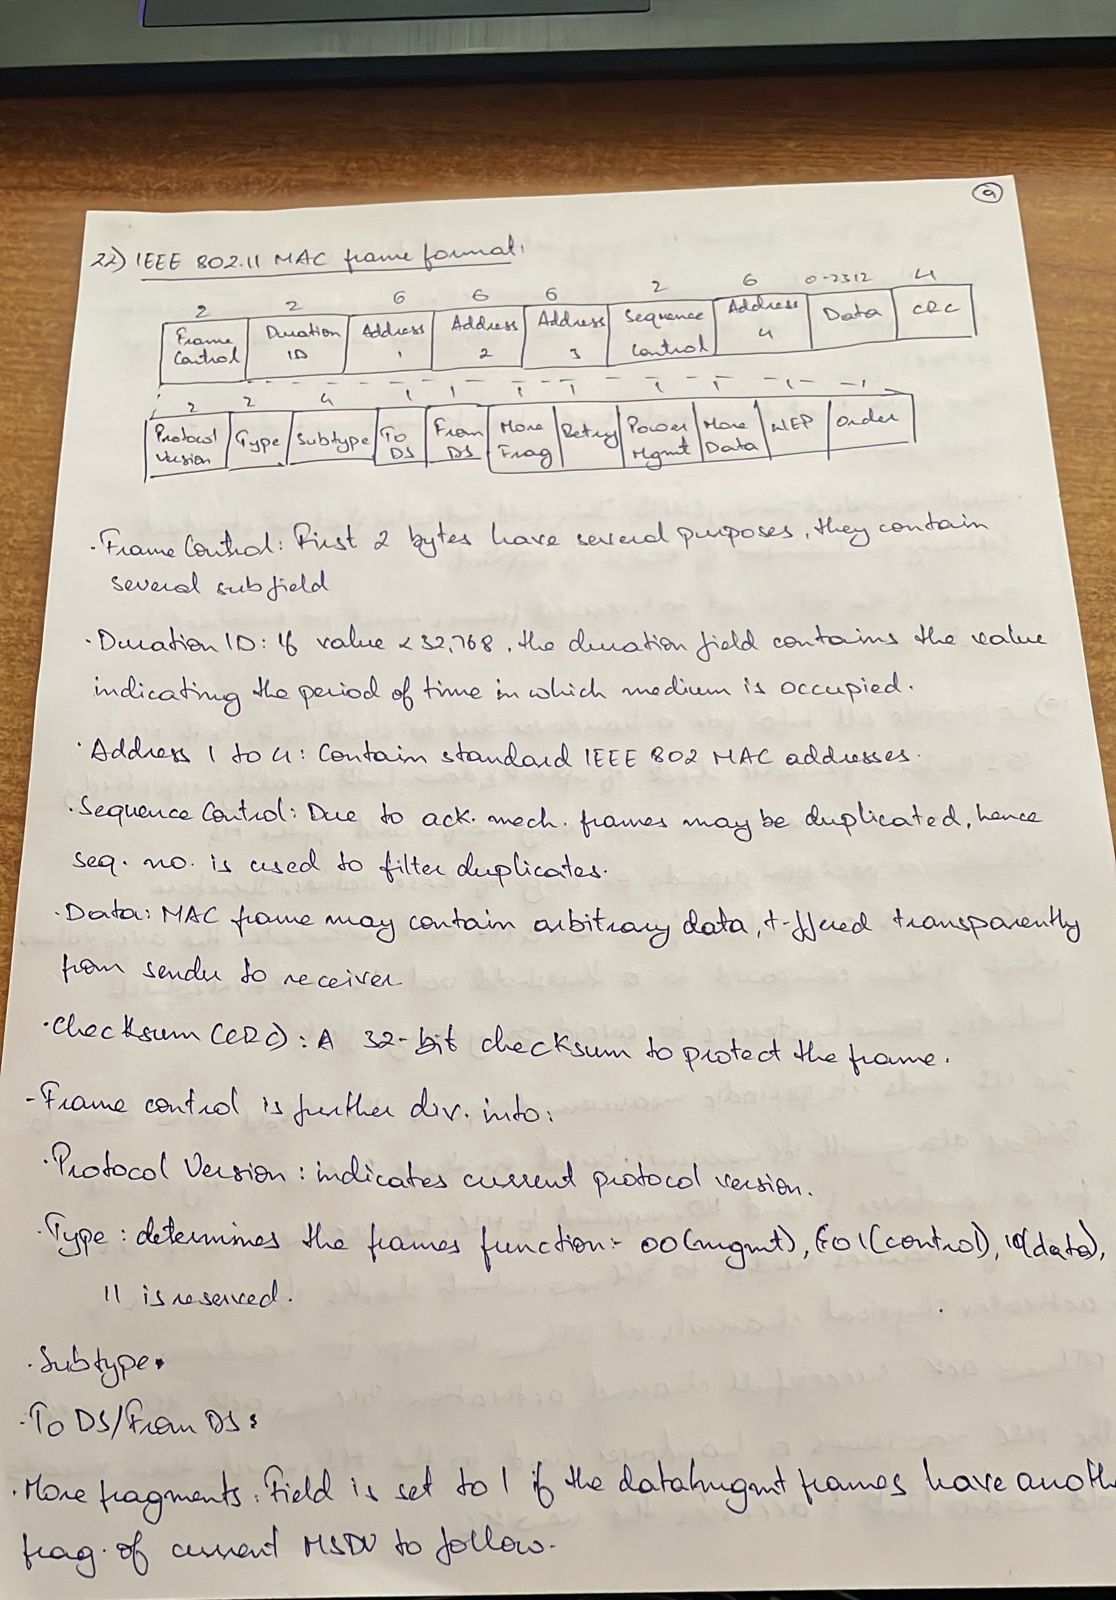 9
22) IEEE 802.11 MAC frame format:
2 2 6 6 6 2 6 0-2312 4
Frame Control | Duration ID | Address 1 | Address 2 | Address 3 | Sequence Control | Address 4 | Data | CRC
2 2 4 1 1 1 1 1 1 1 1
Protocol Version | Type | Subtype | To DS | From DS | More Frag | Retry | Power Mgmt | More Data | WEP | Order
· Frame Control: First 2 bytes have several purposes, they contain
several subfield
· Duration ID: If value < 32,768, the duration field contains the value
indicating the period of time in which medium is occupied.
· Address 1 to 4: Contain standard IEEE 802 MAC addresses.
· Sequence Control: Due to ack. mech. frames may be duplicated, hence
seq. no. is used to filter duplicates.
· Data: MAC frame may contain arbitrary data, t-ffered transparently
from sender to receiver
· Checksum (CRC): A 32-bit checksum to protect the frame.
- Frame control is further div. into:
· Protocol Version: indicates current protocol version.
· Type: determines the frames function:- 00(mgmt), 01(control), 10(data),
11 is reserved.
· Subtype
· To DS/From DS:
· More fragments: Field is set to 1 if the data/mgmt frames have anoth
frag. of current MSDU to follow.